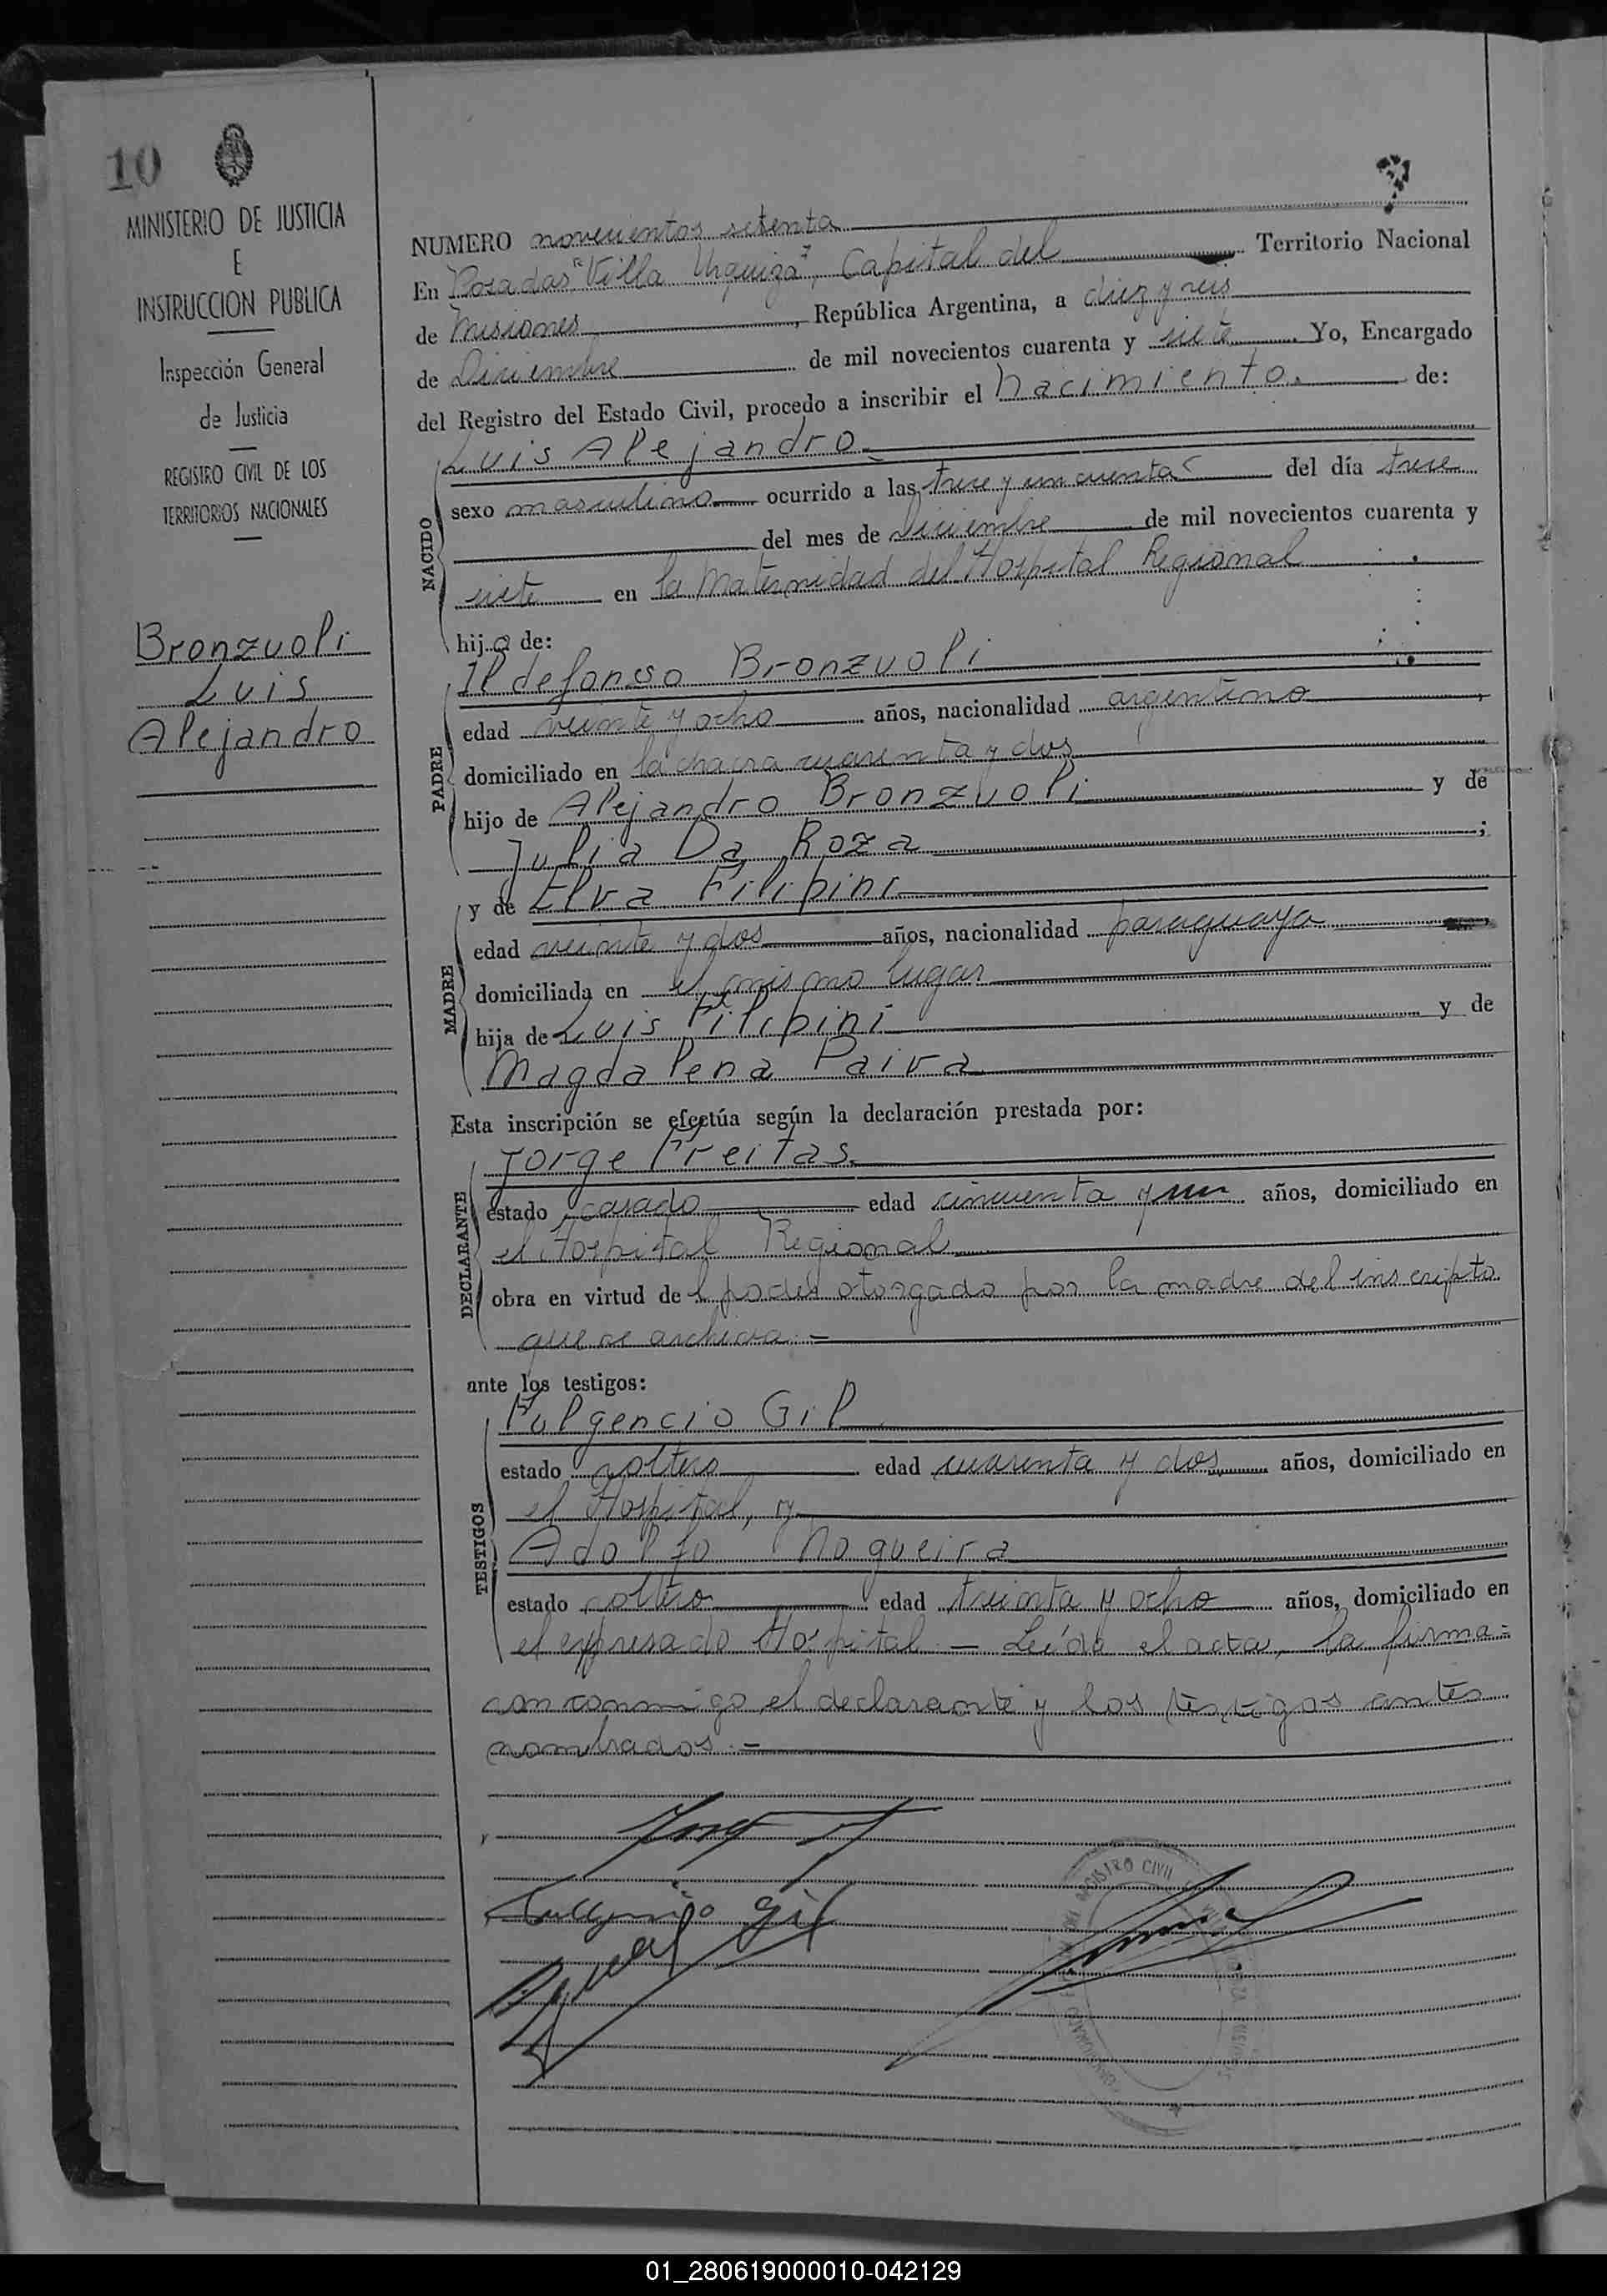 10
MINISTERIO DE JUSTICIA
E
INSTRUCCION PUBLICA
Inspección General
de Justicia
REGISTRO CIVIL DE LOS
TERRITORIOS NACIONALES
Bronzuoli
Luis
Alejandro
NUMERO novecientos setenta
En Posadas "Villa Urquiza", Capital del Territorio Nacional
de Misiones, República Argentina, a diez y seis
de Diciembre de mil novecientos cuarenta y siete. Yo, Encargado
del Registro del Estado Civil, procedo a inscribir el nacimiento. de:
NACIDO
Luis Alejandro
sexo masculino ocurrido a las trece y un cuarto del día trece
del mes de Diciembre de mil novecientos cuarenta y
siete en la Maternidad del Hospital Regional
hijo de:
PADRE
Ildefonso Bronzuoli
edad veinte y ocho años, nacionalidad argentino,
domiciliado en la chacra cuarenta y dos
hijo de Alejandro Bronzuoli y de
Julia Da Roza;
MADRE
y de Elva Filipini
edad veinte y dos años, nacionalidad paraguaya,
domiciliada en el mismo lugar
hija de Luis Filipini y de
Magdalena Paiva
Esta inscripción se efectúa según la declaración prestada por:
DECLARANTE
Jorge Freitas.
estado casado edad cincuenta y un años, domiciliado en
el Hospital Regional
obra en virtud del poder otorgado por la madre del inscripto
que se archiva.=
ante los testigos:
TESTIGOS
Fulgencio Gil
estado soltero edad cuarenta y dos años, domiciliado en
el Hospital, y
Adolfo Nogueira
estado soltero edad treinta y ocho años, domiciliado en
el expresado Hospital.— Leída el acta, la firma=
con conmigo el declarante y los testigos antes
nombrados.=
Fulgencio Gil
REGISTRO CIVIL
01_280619000010-042129